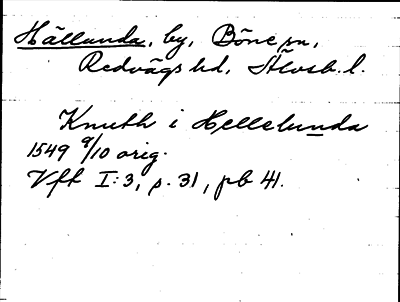 Hällunda, by, Böne sn,
Redvägs hd, Älvsb. l.
Knuth i Hellelunda
1549 9/10 orig.
Vft I:3, s. 31, pb 41.